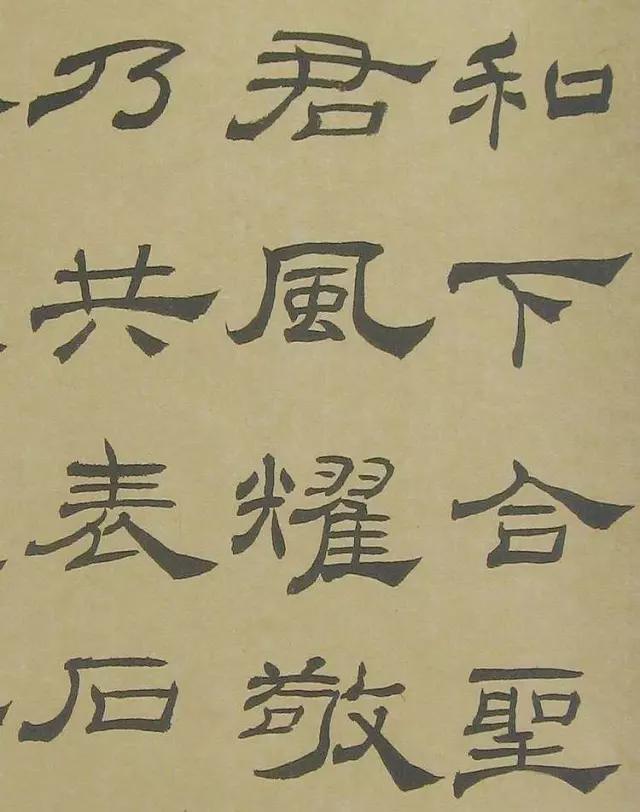 和下合聖
君風耀敬
乃共表石